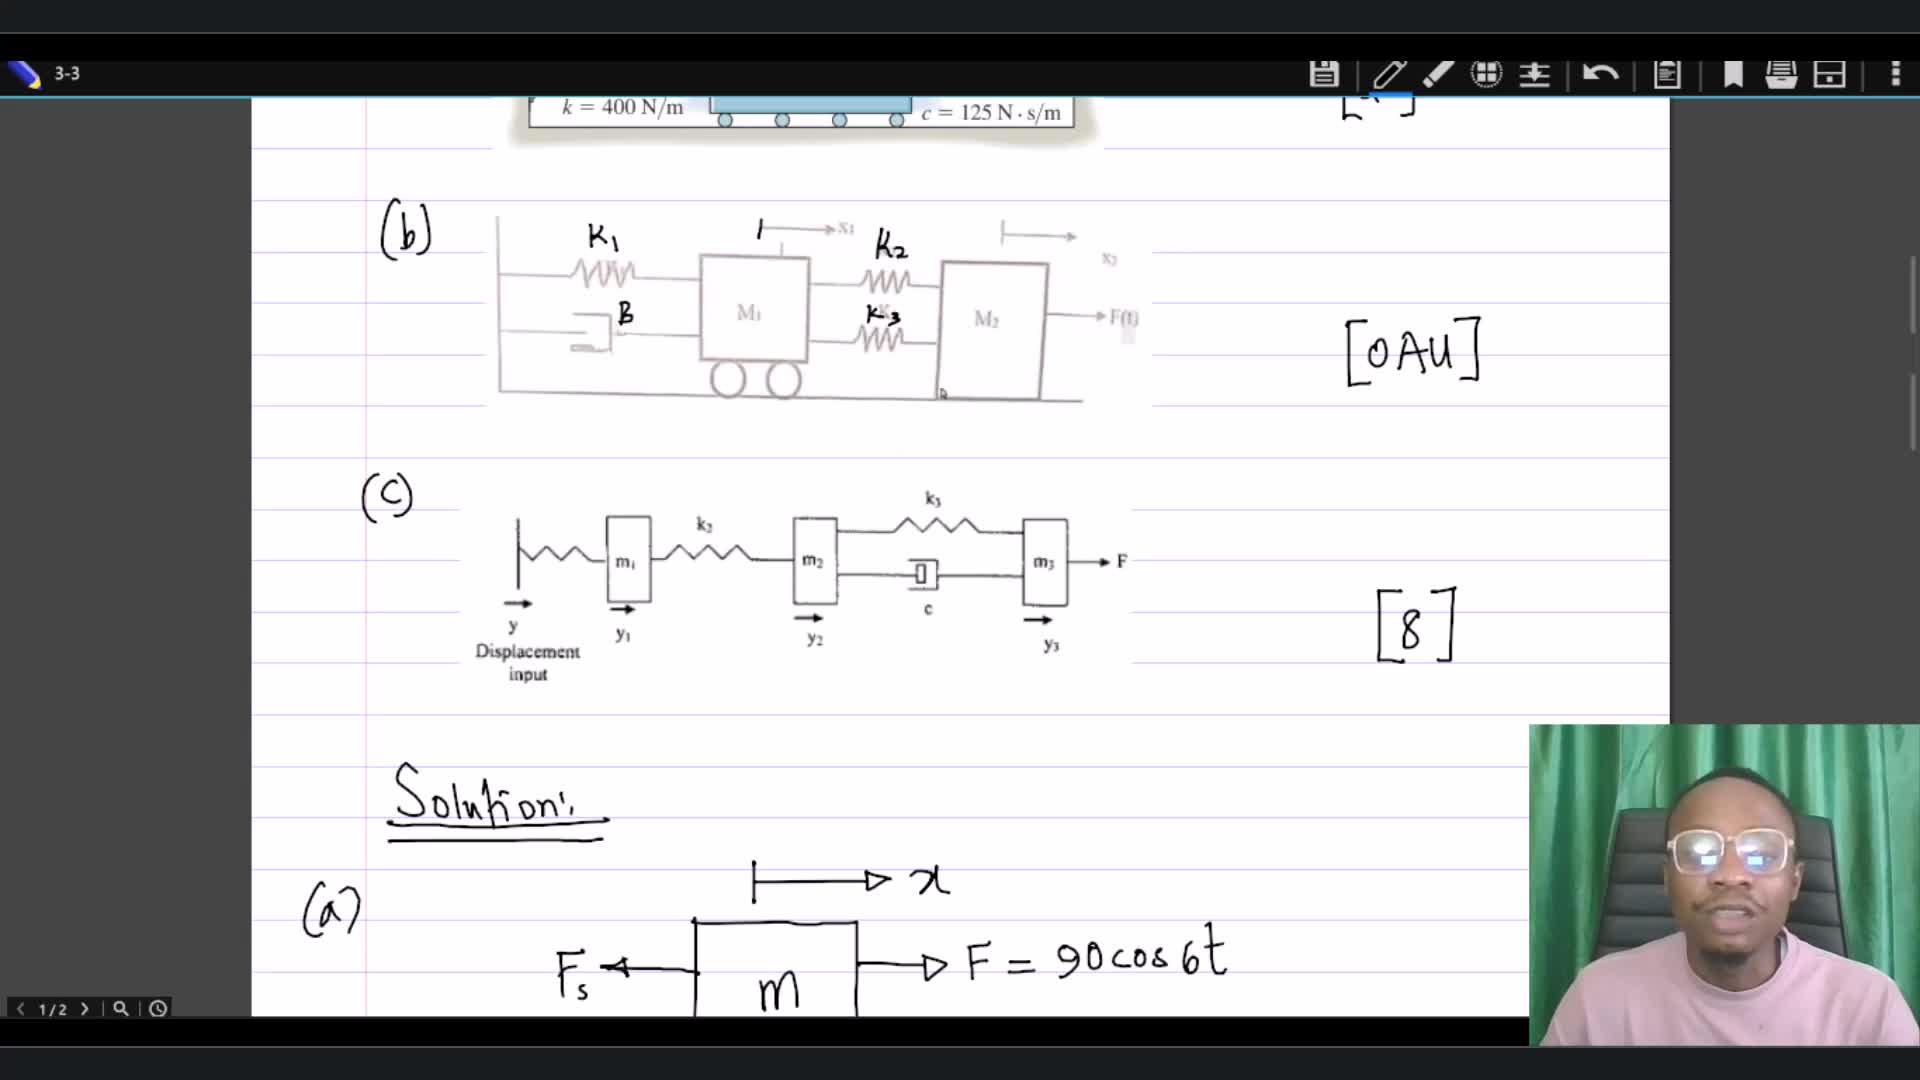 3-3
k = 400 N/m
c = 125 N · s/m
(b)
K1
x1
K2
x2
B
M1
K3
M2
F(t)
[OAU]
(c)
k3
k2
m1
m2
m3
F
c
y
y1
y2
y3
Displacement
input
[8]
Solution:
(a)
x
Fs
F = 90cos6t
m
1/2